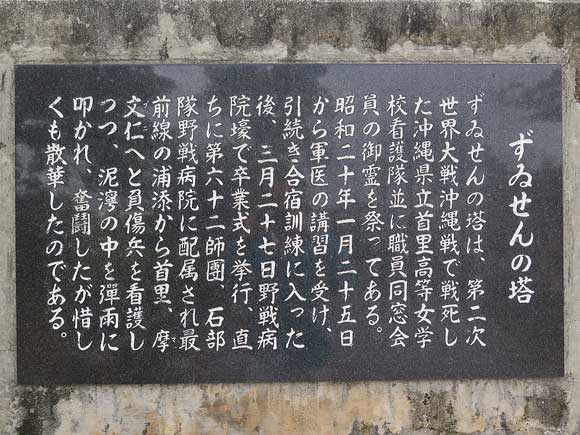 ずゐせんの塔
ずゐせんの塔は、第二次
世界大戦沖縄戦で戦死し
た沖縄県立首里高等女学
校看護隊並に職員同窓会
員の御霊を祭ってある。
昭和二十年一月二十五日
から軍医の講習を受け、
引続き合宿訓練に入った
後、三月二十七日野戦病
院壕で卒業式を挙行、直
ちに第六十二師團 石部
隊野戦病院に配属され最
前線の浦添から首里、摩マ
文ブ仁ニへと負傷兵を看護し
つつ、泥濘の中を彈雨に
叩かれ、奮闘したが惜し
くも散華したのである。